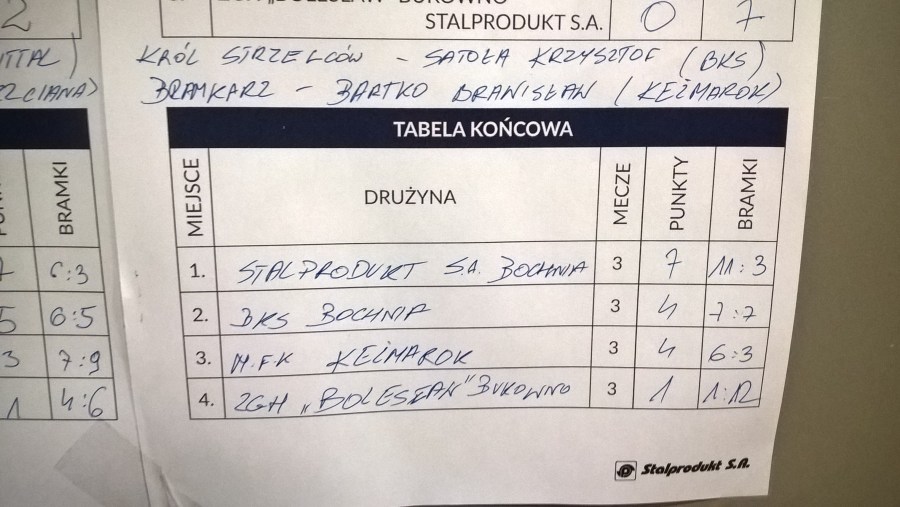 STALPRODUKT S.A. 0 7
KRÓL STRZELCÓW - SATOŁA KRZYSZTOF (BKS)
BRAMKARZ - BARTKO BRANISŁAW (KEŻMAROK)
TABELA KOŃCOWA
MIEJSCE DRUŻYNA MECZE PUNKTY BRAMKI
1. STALPRODUKT S.A. BOCHNIA 3 7 11:3
2. BKS BOCHNIA 3 4 7:7
3. M.F.K KEŻMAROK 3 4 6:3
4. ZGH „BOLESŁAW" BUKOWNO 3 1 1:12
Stalprodukt S.A.
2
BRAMKI
6:3
5 6:5
3 7:9
1 4:6